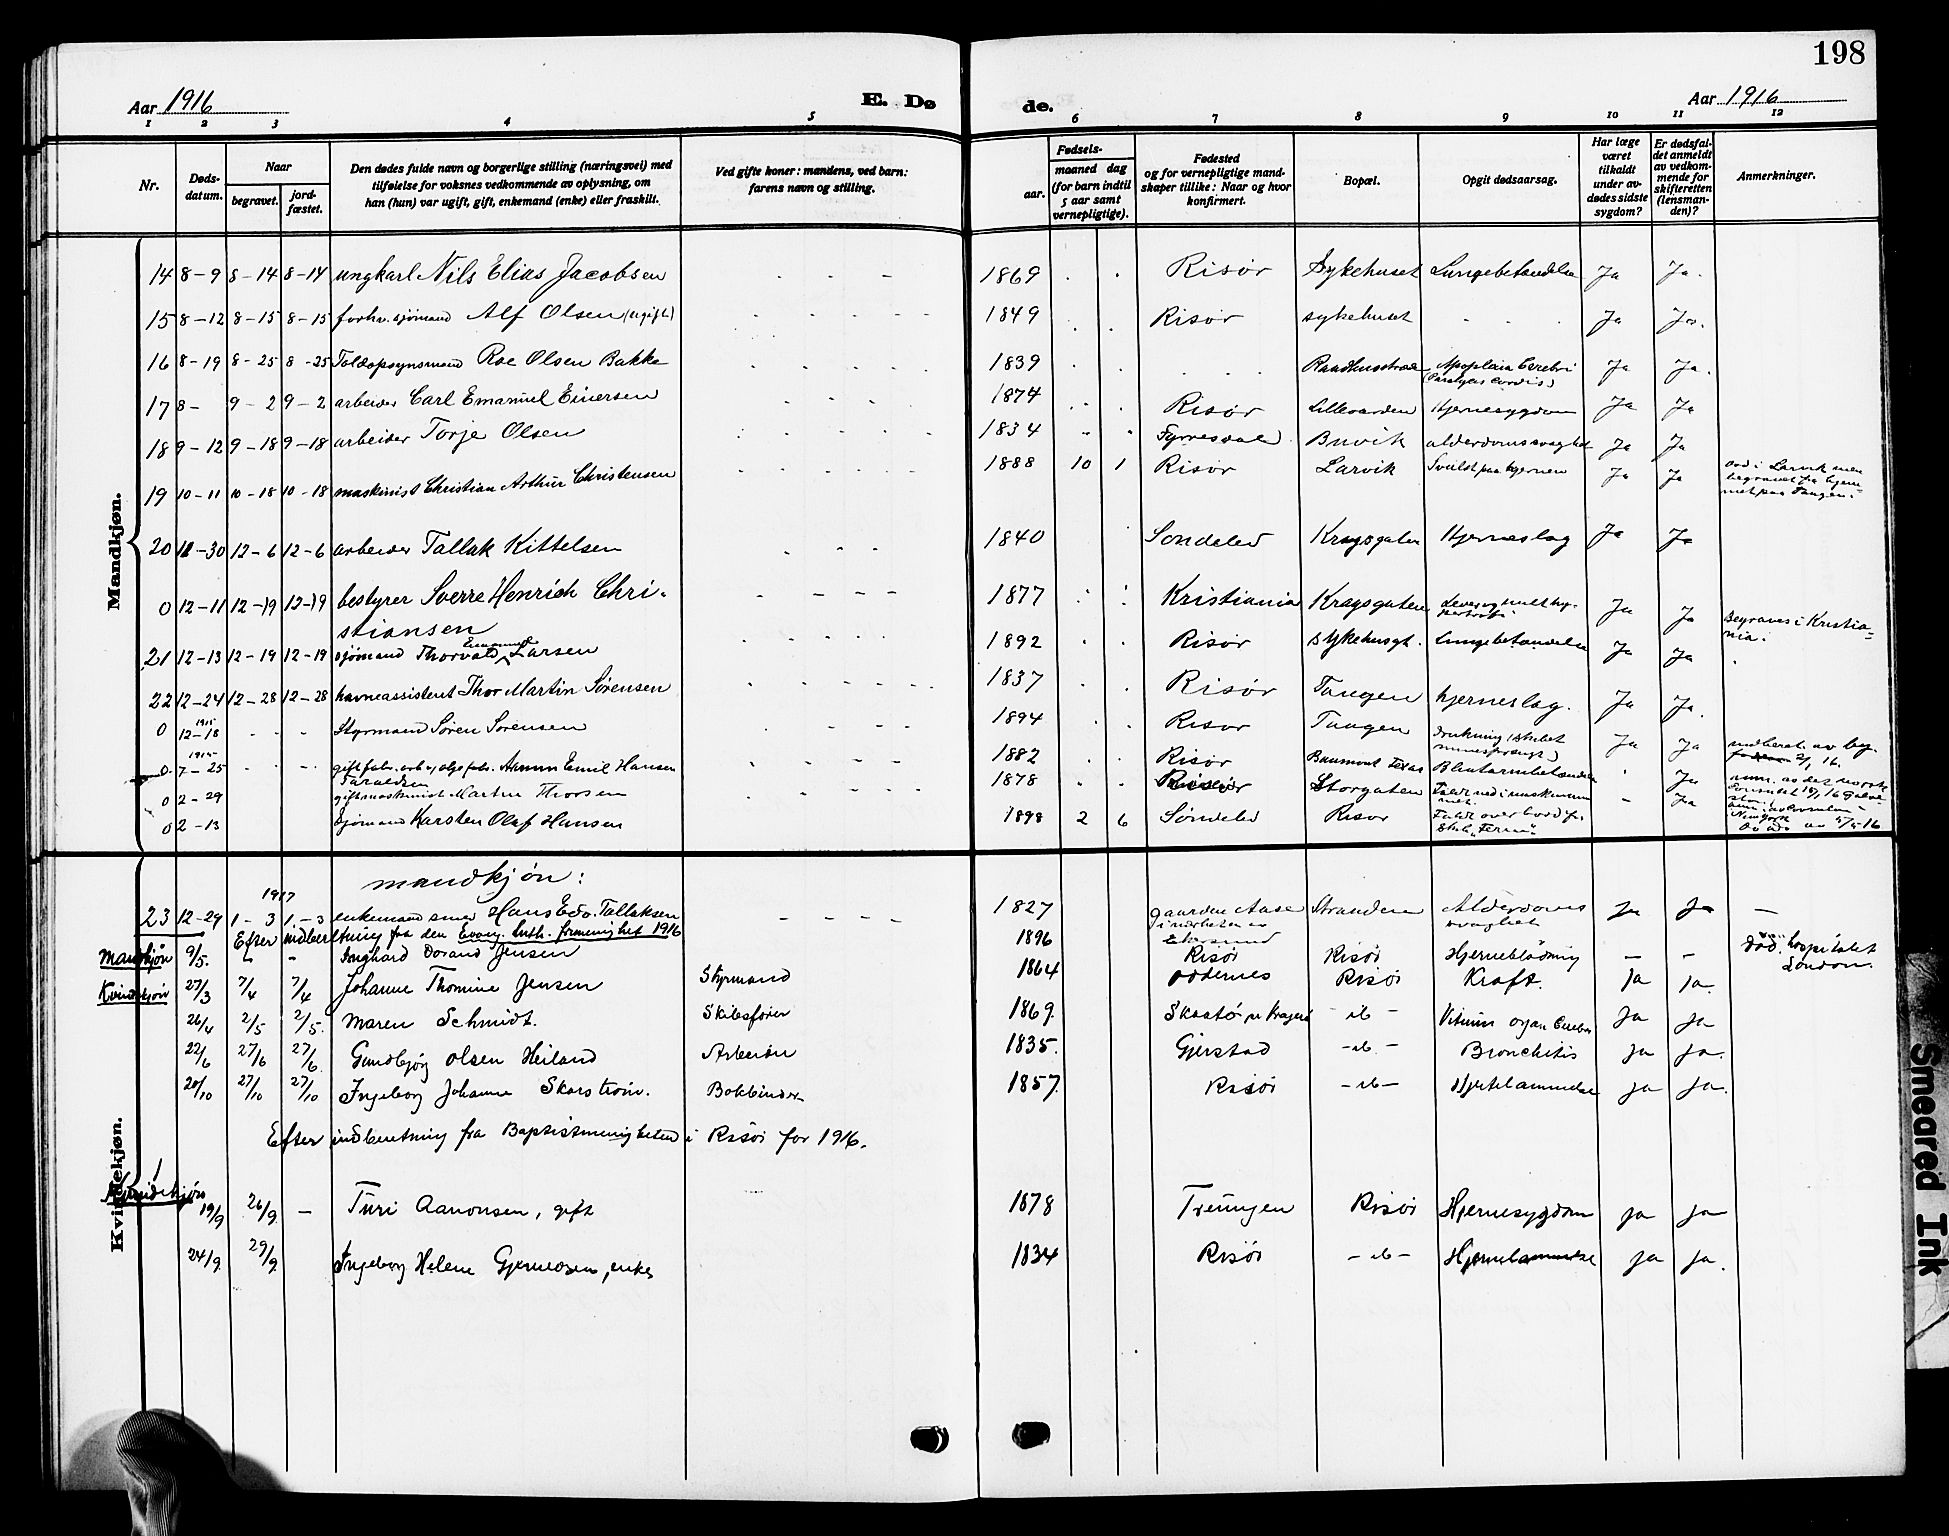 198
Aar 1916
E. Dø
de.
Aar 1916
1 2 3 4 5 6 7 8 9 10 11 12
Nr.
Døds-
datum.
Naar
begravet.
jord-
fæstet.
Den dødes fulde navn og borgerlige stilling (næringsvei) med
tilføielse for voksnes vedkommende av oplysning, om
han (hun) var ugift, gift, enkemand (enke) eller fraskilt.
Ved gifte koner: mandens, ved barn:
farens navn og stilling.
Fødsels-
aar.
maaned dag
(for barn indtil
5 aar samt
vernepligtige).
Fødested
og for vernepligtige mand-
skaper tillike: Naar og hvor
konfirmert.
Bopæl.
Opgit dødsaarsag.
Har læge
været
tilkaldt
under av-
dødes sidste
sygdom?
Er dødsfal-
det anmeldt
av vedkom-
mende for
skifteretten
(lensman-
den)?
Anmerkninger.
Mandkjøn.
14 8-9 8-14 8-14 ungkarl Nils Elias Jacobsen 1869 Risør Sykehuset Lungebetændelse Ja Ja.
15 8-12 8-15 8-15 forhv. sjømand Alf Olsen (ugift) 1849 Risør sykehuset Ja Ja.
16 8-19 8-25 8-25 Toldopsynsmand Roe Olsen Bakke 1839 Raadhusstræde Apoplexia Cerebri Ja Ja.
(Paralysis Cordis)
17 8- 9-2 9-2 arbeider Carl Emanuel Einersen 1874 Risør Lillevarden Hjernesygdom Ja Ja
18 9-12 9-18 9-18 arbeider Torje Olsen 1834 Fyrresdal Buvik alderdomssvaghet Ja Ja
19 10-11 10-18 10-18 maskinist Christian Arthur Christensen 1888 10 1 Risør Larvik Svulst paa hjernen Ja Ja
Død i Larvik men
begravet fra hjem-
met paa Tangen.
20 11-30 12-6 12-6 arbeider Tallak Kittelsen 1840 Søndeled Kragsgaten Hjerneslag Ja Ja
0 12-11 12-19 12-19 bestyrer Sverre Henrich Chri-
stiansen 1877 Kristiania Kragsgaten Ja Ja
Begraves i Kristia-
nia.
21 12-13 12-19 12-19 sjømand Thorvald Emanuel Larsen 1892 Risør Sykehusgt. Lungebetændelse Ja Ja
22 12-24 12-28 12-28 havneassistent Thor Martin Sørensen 1837 Risør Tangen hjerneslag. Ja Ja.
0 1915 12-18 Styrmand Søren Sørensen 1894 Risør Tangen Drukning (skibet
minesprængt) Ja Ja
0 1915 7-25 Aanun Emil Hansen
Taraldsen 1882 Risør Beaumont Texas Blindtarmbetændelse Ja
0 2-29 gift maskinist Martin Thorsen 1878 Risør Storgaten Faldt ned i maskinrum
met. - Ja
0 2-13 Sjømand Karsten Olaf Hansen 1898 2 6 Søndeled Risør Faldt over bord fr.
Skib
mandkjøn:
1917
23 12-29 1-3 1-3 enkemand smed Hans Edv. Tallaksen 1827 gaarden Aase Stranden Alderdoms Ja Ja -
i nærheten av svaghet
Efter indberetning fra den Evang. Luth. frimenighet 1916
Mandkjøn 9/5. Inghard Dorand Jensen 1896 Risør Risør Hjerneblødning - -
Død hospitalet
London.
Kvindekjøn 27/3 7/4 7/4 Johanne Thomine Jensen Styrmand 1864 Oddernes Risør Kraft. Ja Ja.
26/4 2/5 2/5. Maren Schmidt. Skibsfører 1869. Skaatø pr Kragerø -ib- Vitium organ Cerebri Ja Ja
22/6 27/6 27/6 Gundbjørg Olsen Heiland Arbeider 1835. Gjerstad -ib- Bronchitis Ja Ja.
20/10 27/10 27/10 Ingeborg Johanne Skarstrøm. Bokbinder 1857. Risør -ib- Hjertelammelse Ja Ja.
Efter indberetning fra Baptistmenigheten i Risør for 1916.
Kvindekjøn.
Kvindekjøn
19/9 26/9 - Turi Aanonsen, gift 1878 Treungen Risør Hjernesygdom Ja Ja
24/9 29/9 Ingeborg Helene Gjermosen, enke 1834 Risør -ib- Hjertelammelse Ja Ja.
Smeared Ink